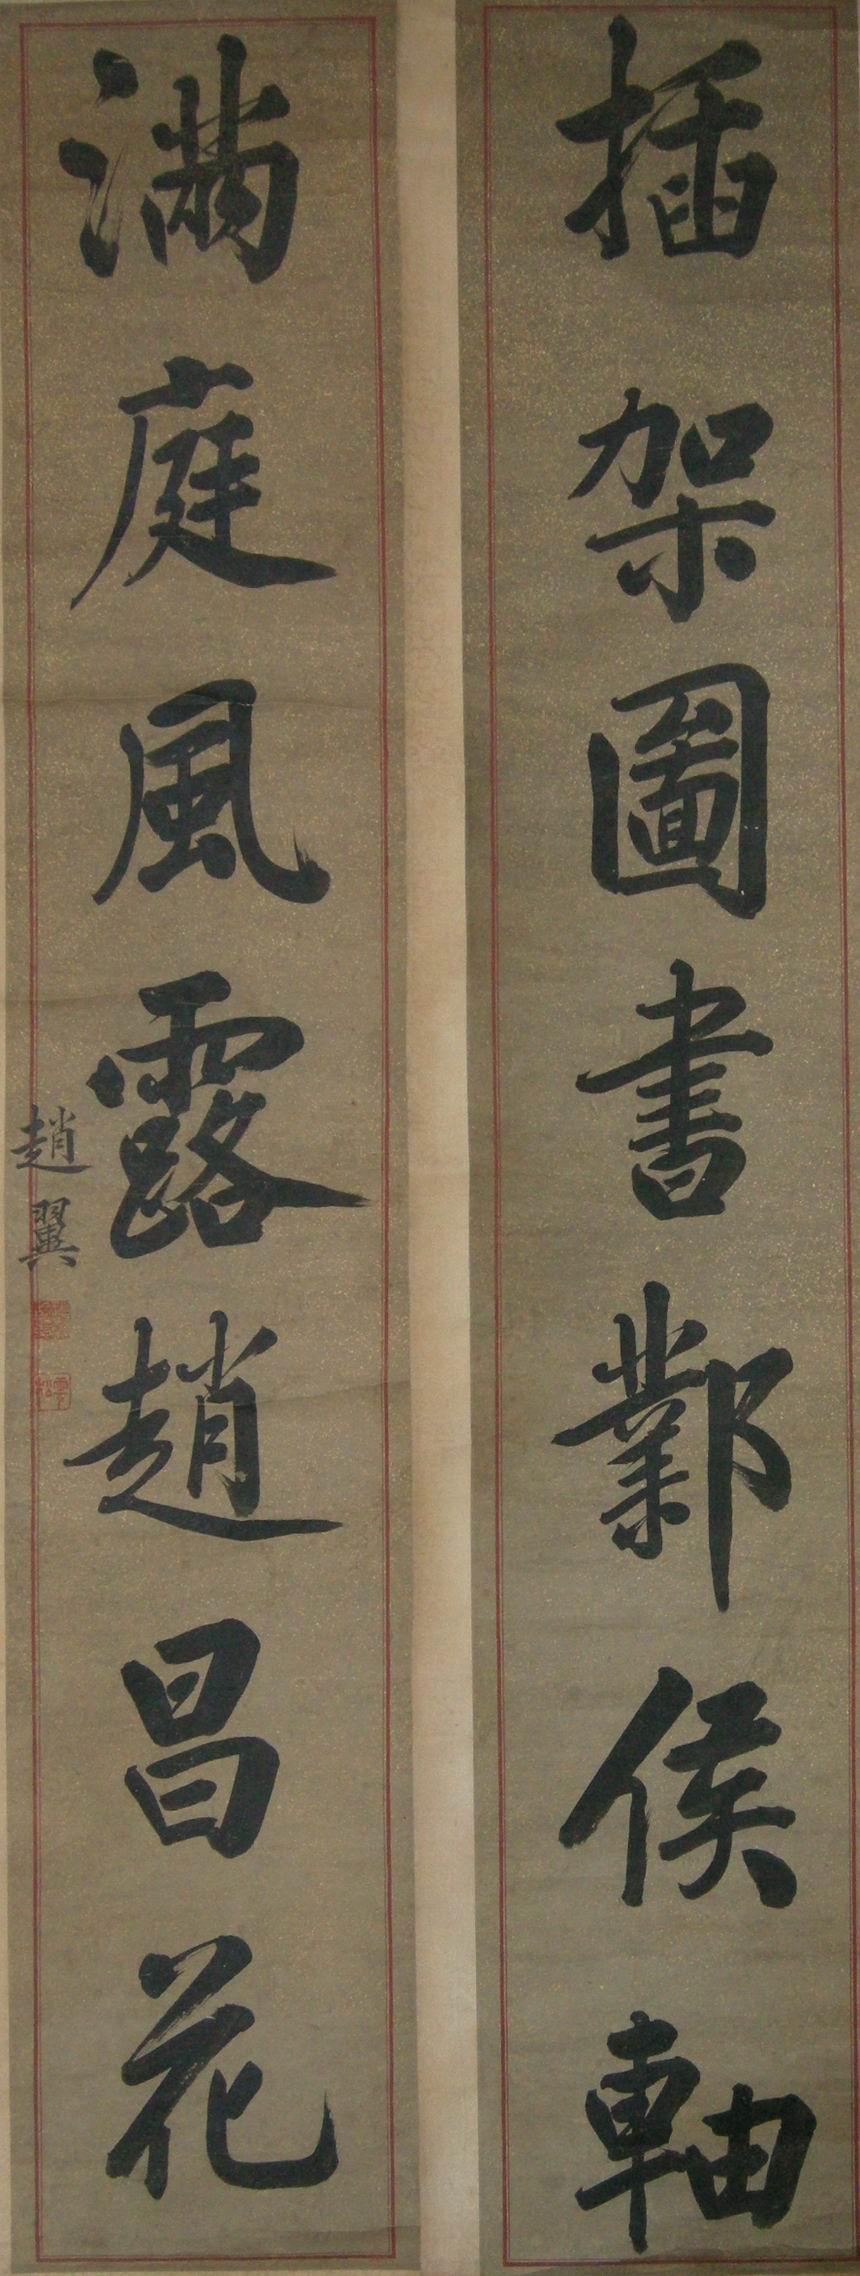 插架圖書鄴侯軸
滿庭風露趙昌花
趙翼